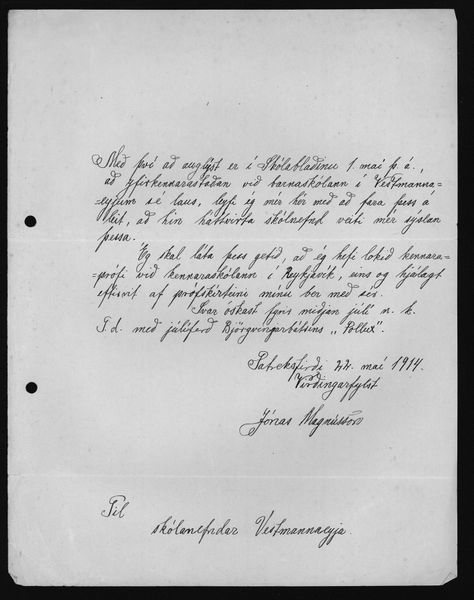 Með því að auglýst er í Skólablaðinu 1. maí þ. á.,
að yfirkennarastaðan við barnaskólann í Vestmanna-
=eyjum sé laus, leyfi eg mér hér með að fara þess á
leit, að hin háttvirta skólanefnd veiti mér sýslan
þessa.
Eg skal láta þess getið, að ég hefi lokið kennara-
=prófi við kennaraskólann í Reykjavík, eins og hjálagt
eftirrit af prófskírteini mínu ber með sér.
Svar óskast fyrir miðjan júlí n. k.
T. d. með júlíferð Björgvinarbátsins „Pollux".
Patreksfirði 22. maí 1914.
Virðingarfylst
Jónas Magnússon
Til
skólanefndar Vestmannaeyja.